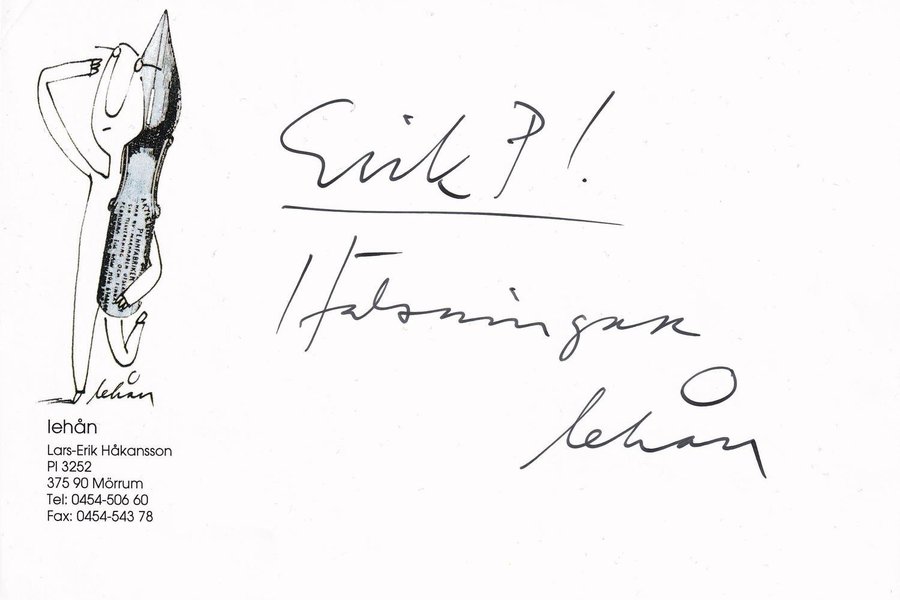 Erik P!
Hälsningar
lehån
lehån
lehån
Lars-Erik Håkansson
Pl 3252
375 90 Mörrum
Tel: 0454-506 60
Fax: 0454-543 78